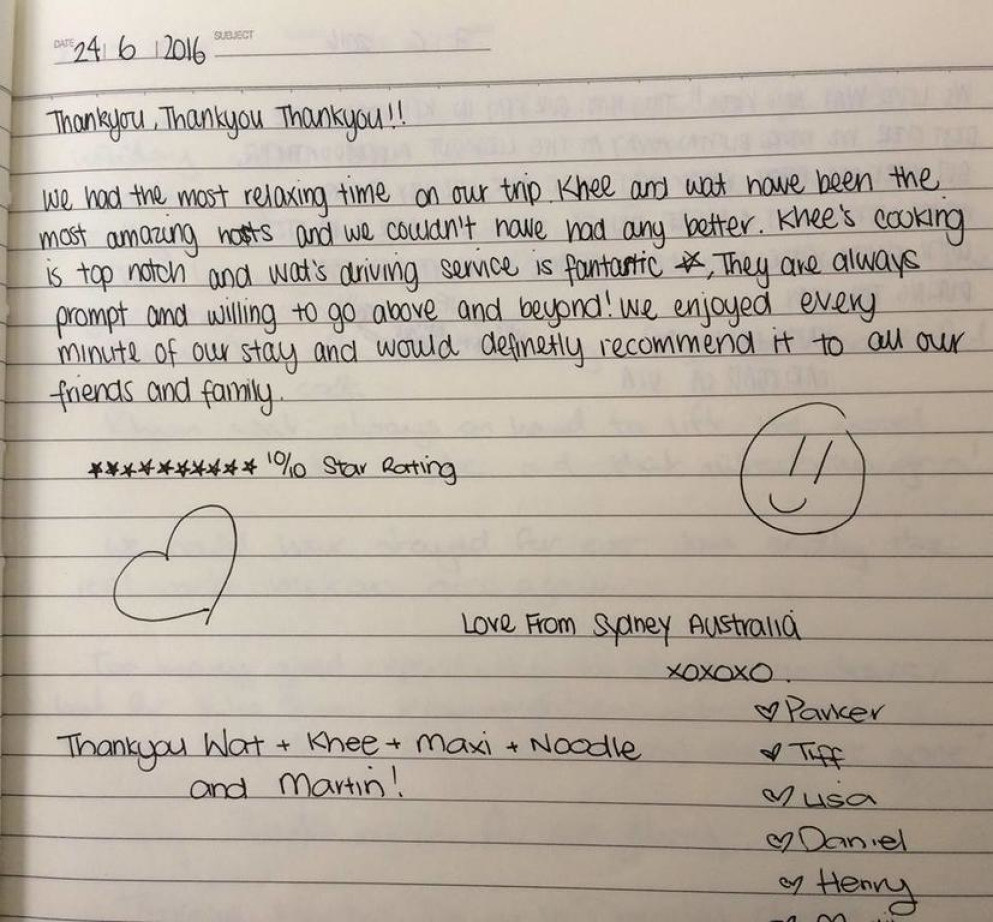 DATE 24 6 2016 SUBJECT
Thankyou, Thankyou Thankyou!!
We had the most relaxing time on our trip. Khee and wat have been the
most amazing hosts and we couldn't have had any better. Khee's cooking
is top notch and wat's driving service is fantastic, They are always
prompt and willing to go above and beyond! We enjoyed every
minute of our stay and would definetly recommend it to all our
friends and family.
********** 10/10 Star Rating
Love From Sydney Australia
xoxoxo.
♡ Parker
Thankyou Wat + Khee + Maxi + Noodle
♡ Tiff
and Martin!
♡ Lisa
♡ Daniel
♡ Henry